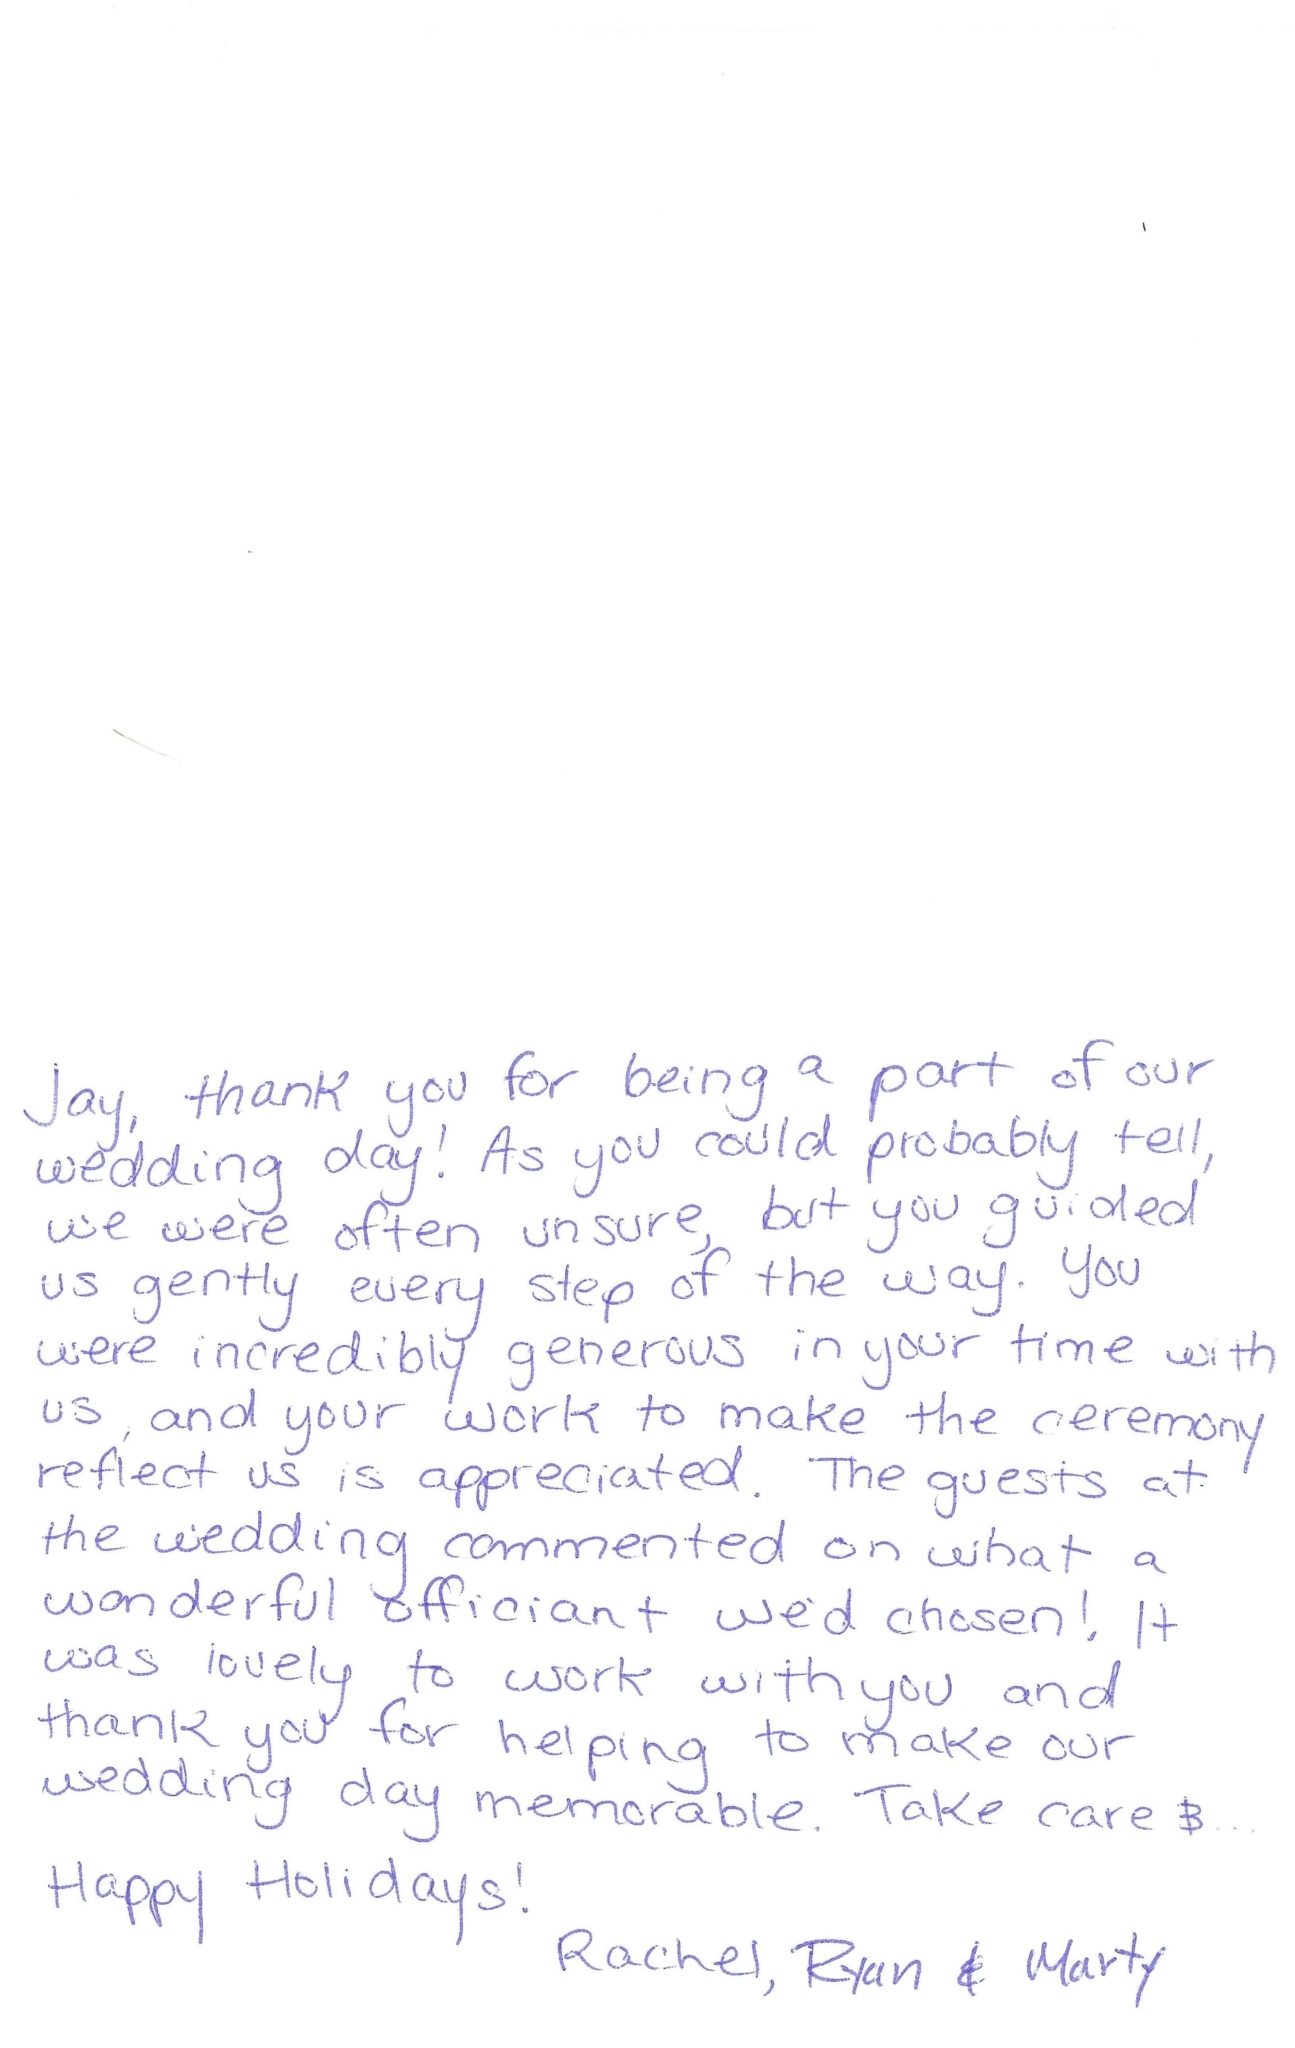 Jay, thank you for being a part of our
wedding day! As you could probably tell,
we were often unsure, but you guided
us gently every step of the way. You
were incredibly generous in your time with
us, and your work to make the ceremony
reflect us is appreciated. The guests at
the wedding commented on what a
wonderful officiant we'd chosen! It
was lovely to work with you and
thank you for helping to make our
wedding day memorable. Take care &...
Happy Holidays!
Rachel, Ryan & Marty